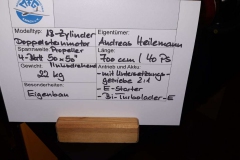 Modelltyp: 18-Zylinder
Doppelsternmotor
Eigentümer:
Andreas Heilemann
Spannweite Propeller
4-Blatt 50x50"
Länge:
700 ccm / 40 PS
Gewicht:
22 kg
Antrieb und Akku:
-mit Untersetzungs-
getriebe 2:1
- E-Starter
- Bi-Turbolader-E
Besonderheiten:
Eigenbau